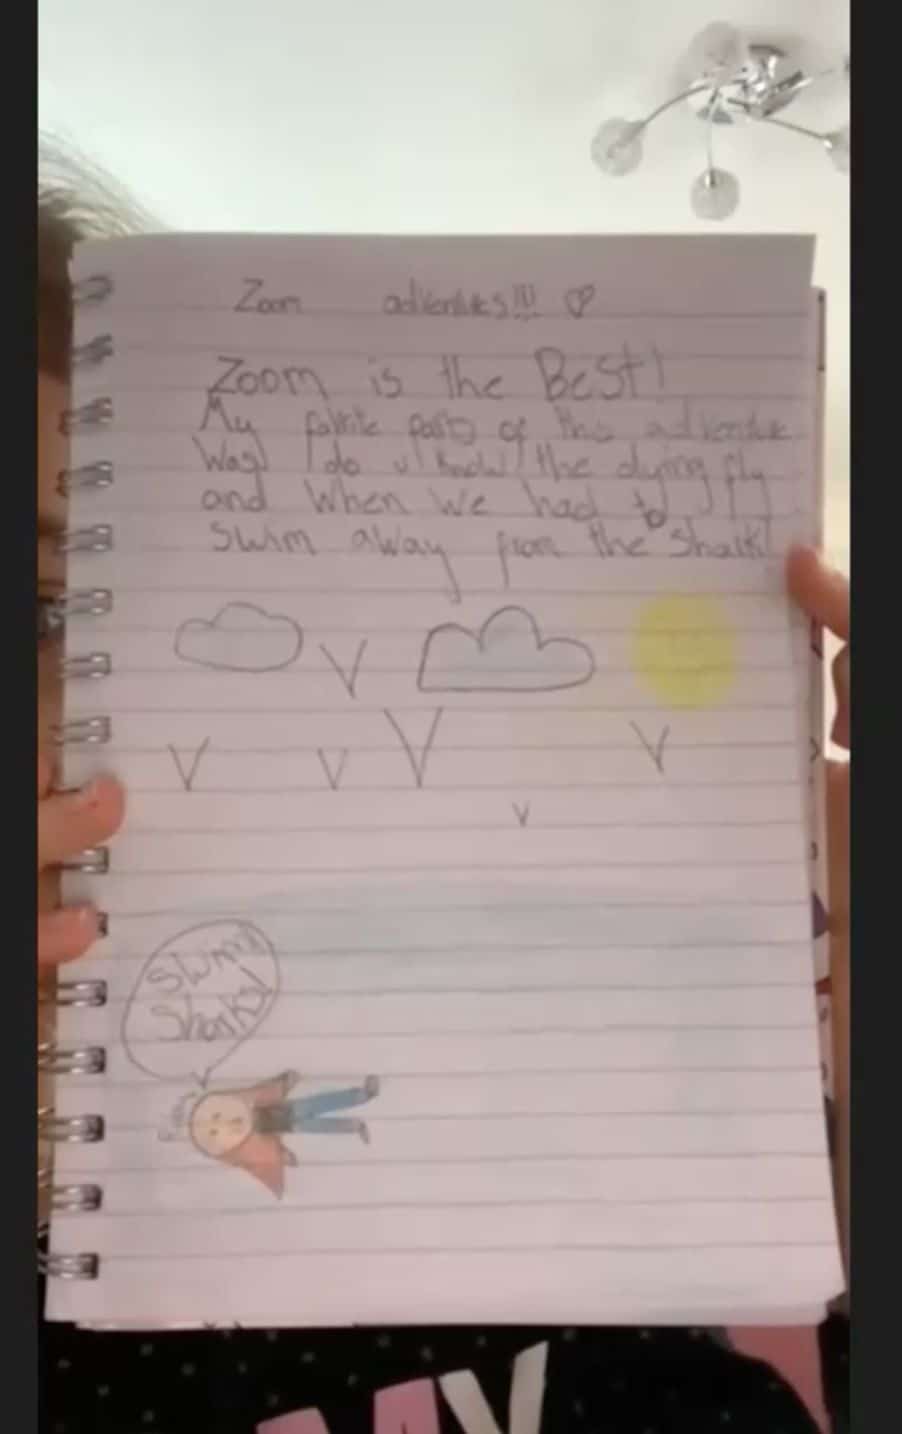 Zoom adventues!!! ♡
Zoom is the Best!
My favrite parts of this adventue
Was "do u know the dying fly
and when we had to
swim away from the shark!
Swim!
Sharks!
MY